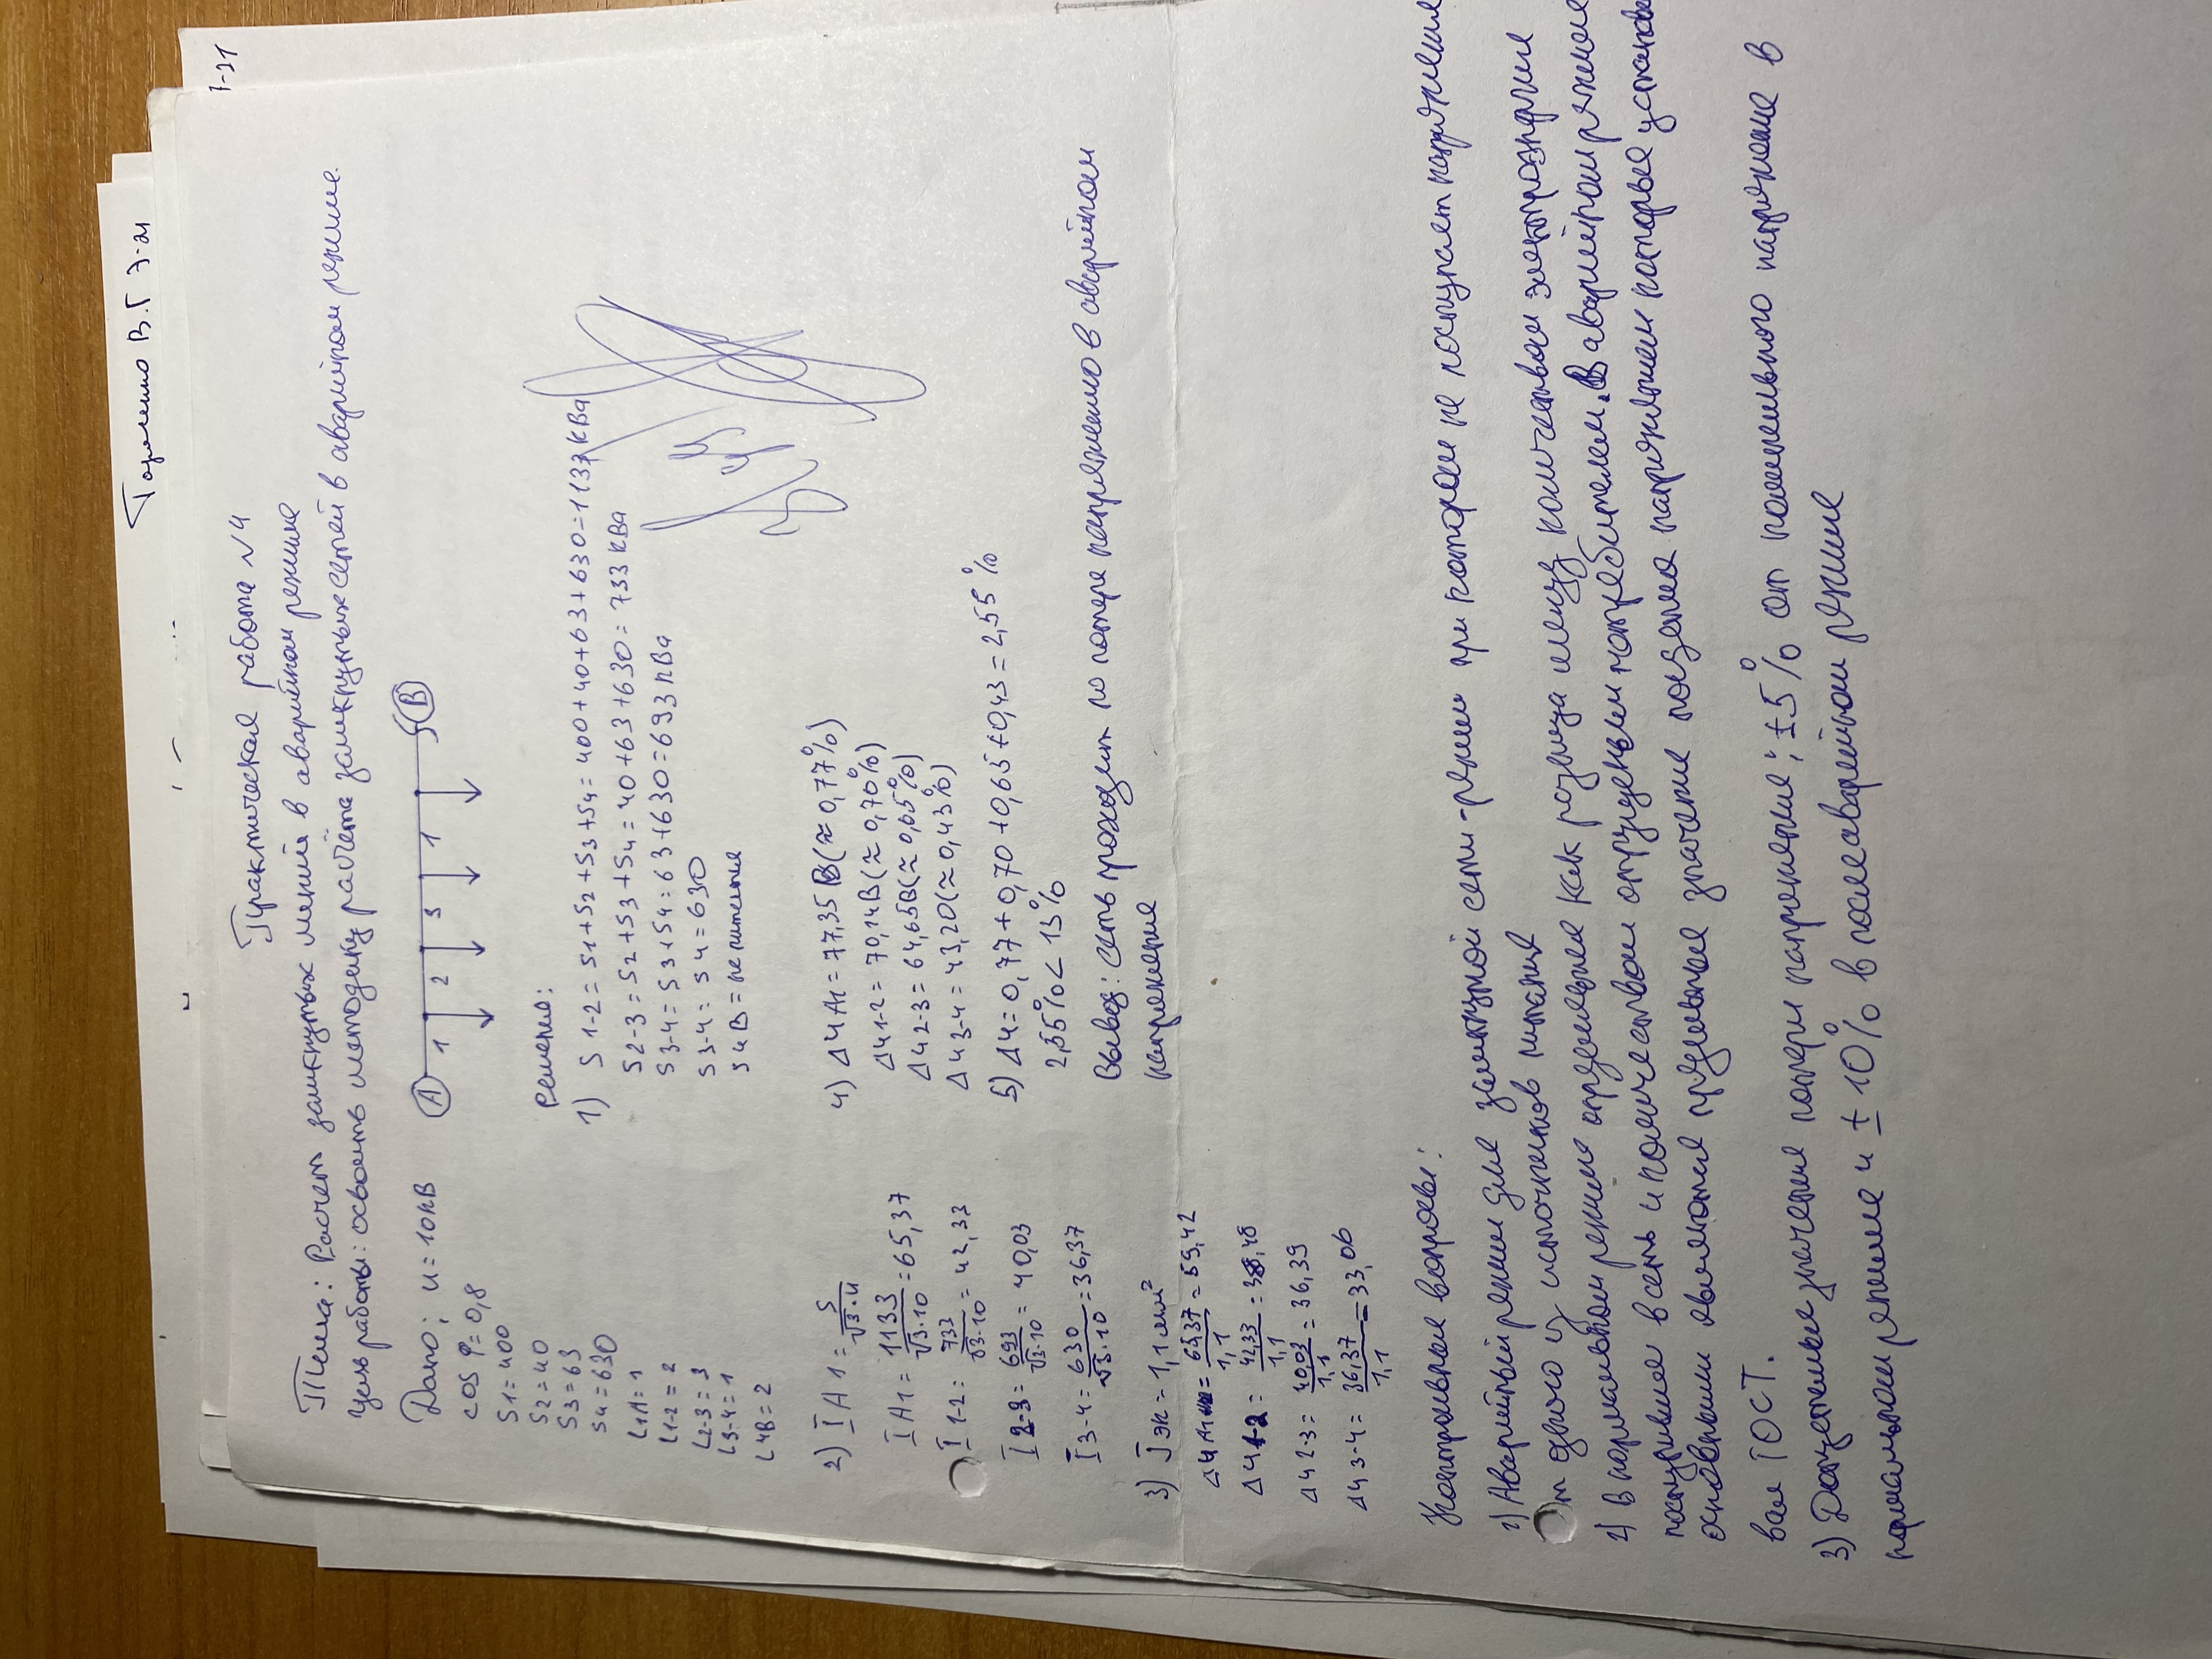 7-21
В.Г Э-21
Практическая работа №4
Тема: Расчет замкнутых линий в аварийном режиме
Цель работы: освоить методику расчёта замкнутых сетей в аварийном режиме.
Дано; U=10кВ
cos φ=0,8
S1=400
S2=40
S3=63
S4=630
L1A=1
L1-2=2
L2-3=3
L3-4=1
L4B=2
A 1 2 3 1 5 B
Решение:
1) S1-2=S1+S2+S3+S4=400+40+63+630=1133 кВа
S2-3=S2+S3+S4=40+63+630=733 кВа
S3-4=S3+S4=63+630=693 кВа
S3-4=S4=630
S4B=не питается
2) IA1=S/√3·U
IA1=1133/√3·10=65,37
I1-2=733/√3·10=42,33
I2-3=693/√3·10=40,03
I3-4=630/√3·10=36,37
3) Jэк=1,1
Δ4A1=65,37/1,1=59,42
Δ41-2=42,33/1,1=38,48
Δ42-3=40,03/1,1=36,39
Δ43-4=36,37/1,1=33,06
4) Δ4A1=77,35В(≈0,77%)
Δ41-2=70,14В(≈0,70%)
Δ42-3=64,65В(≈0,65%)
Δ43-4=43,20(≈0,43%)
5) Δ4=0,77+0,70+0,65+0,43=2,55%
2,55%<15%
Вывод: сеть проходит по потере напряжению в аварийном
напряжение
Контрольные вопросы:
1) Аварийный режим для замкнутой сети-режим при котором не поступает напряжение
от одного из источников питания
2) В нормальном режиме определяется как разница между количеством электроэнергия
поступившие в сеть и количеством отпущенным потребителем. В аварийном режиме
основными являются предельные значение подъема напряжением которые установ
вал ГОСТ.
3) Допустимые значение потери напряжение; ±5% от номинального напряжение в
нормальном режиме и ±10% в послеаварийном режиме